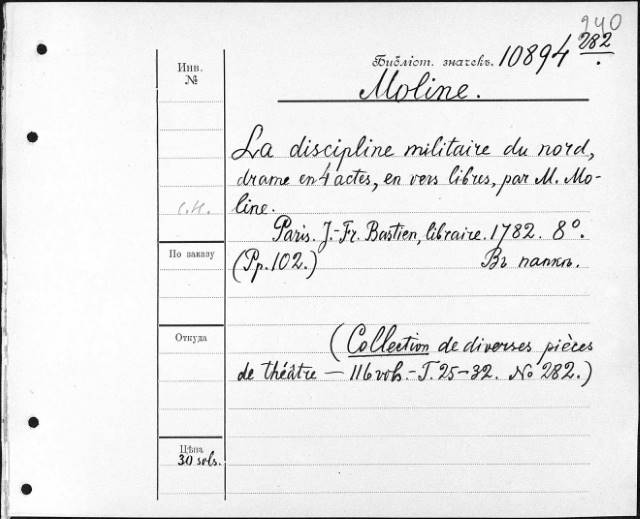 240
Библіот. значекъ. 10894 282
Инв.
№
Moline.
La discipline militaire du nord,
drame en 4 actes, en vers libres, par M. Mo-
line.
с.н.
Paris. J.-Fr. Bastien, libraire. 1782. 8°.
(Pp. 102.) Въ папкѣ.
По заказу
Откуда
(Collection de diverses pièces
de théâtre — 116 vols. - T. 25-32. № 282.)
Цѣна
30 sols.